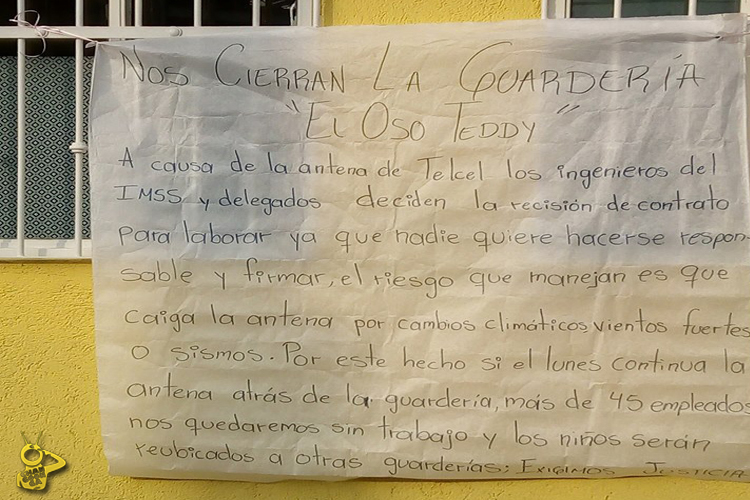 NOS CIERRAN LA GUARDERÍA
"El OSO TEDDY"
A causa de la antena de Telcel los ingenieros del
IMSS y delegados deciden la recisión de contrato
para laborar ya que nadie quiere hacerse respon-
sable y firmar, el riesgo que manejan es que
caiga la antena por cambios climáticos vientos fuertes
o sismos. Por este hecho si el lunes continua la
antena atrás de la guardería, más de 45 empleados
nos quedaremos sin trabajo y los niños serán
reubicados a otras guarderías; EXIGIMOS JUSTICIA